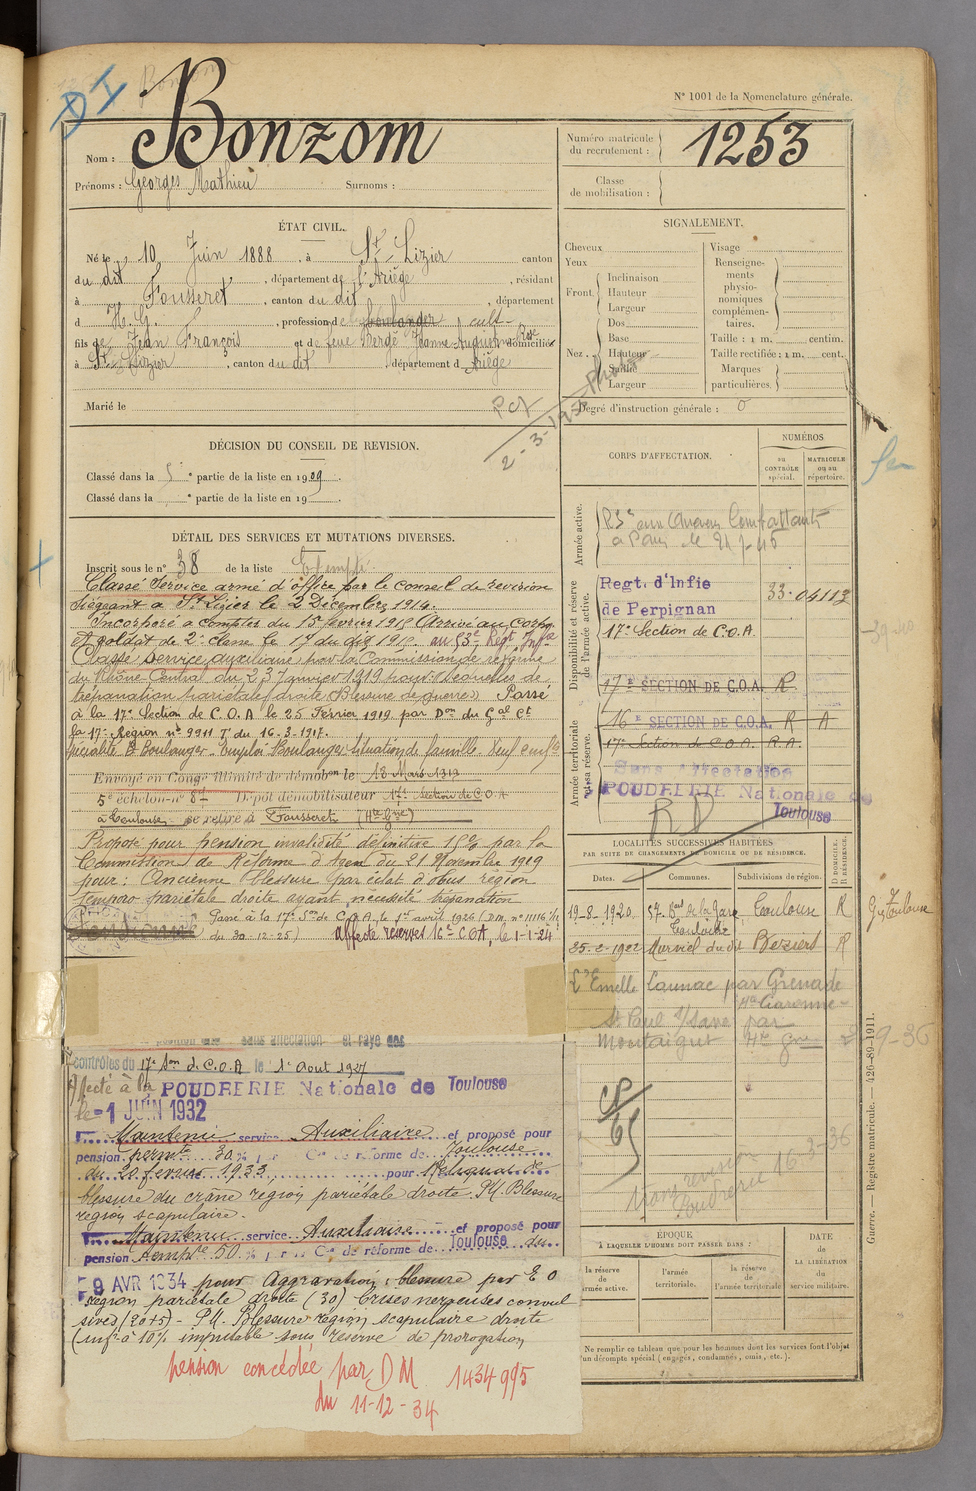 D I
N° 1001 de la Nomenclature générale.
Nom : Bonzom
Prénoms : Georges Mathieu Surnoms :
Numéro matricule du recrutement : 1253
Classe de mobilisation :
ÉTAT CIVIL.
Né le 10 Juin 1888, à St-Lizier canton
du dit, département de l'Ariège, résidant
à Fousseret, canton du dit, département
d H. G., profession d boulanger cult-
fils de Jean François et de feue Bergé Jeanne Augustine Rose domiciliés
à St Lizier, canton du dit, département d Ariège
Marié le
2-3-193
SIGNALEMENT.
Cheveux
Yeux
Front. Inclinaison
Hauteur
Largeur
Nez. Dos
Base
Hauteur
Saillie
Largeur
Visage
Renseignements physionomiques complémentaires.
Taille : 1 m. centim.
Taille rectifiée : 1 m. cent.
Marques particulières.
Degré d'instruction générale : 0
DÉCISION DU CONSEIL DE REVISION.
Classé dans la 5e partie de la liste en 1909.
Classé dans la e partie de la liste en 19 .
DÉTAIL DES SERVICES ET MUTATIONS DIVERSES.
Inscrit sous le n° 38 de la liste Exempté
Classé Service armé d'office par le conseil de revision
siégeant à St Lizier le 2 Décembre 1914.
Incorporé à compter du 15 février 1915 Arrivé au corps
et soldat de 2e classe le 17 du dit 1915. au 53e Régt Infie
Classé service auxiliaire par la Commission de réforme
du Rhône Central du 23 Janvier 1919 pour : Sequelles de
trépanation pariétale droite (Blessure de guerre) Passé
à la 17e Section de C.O.A le 25 Février 1919 par Don du Gal Ct
la 17e Région n° 9911 T du 16-3-1917.
Spécialité Boulanger. Emploi Boulanger. Situation de famille. Veuf
Envoyé en Congé illimité de démobon le 18 Mars 1919
5e échelon n° 87 Dépôt démobilisateur 17e Section de C.O.A
à Toulouse se retire à Fousseret (Hte Gne)
Proposé pour pension invalidité définitive 15% par la
Commission de Réforme d'Agen du 21 Novembre 1919
pour : Ancienne blessure par éclat d'obus région
temporo pariétale droite ayant nécessité trépanation
Passé à la 17e Son de C.O.A, le 1er avril 1926 (D.M. n° 11116
du 30-12-25) affecté réserves 16e COA, le 1-1-24
sans affectation et rayé des
contrôles du 17e Son d. C.O.A le 1er Aout 1927
Affecté à la POUDRERIE Nationale de Toulouse
le -1 JUIN 1932
Maintenu service Auxiliaire et proposé pour
pension permte 30 % par la Con de réforme de Toulouse
du 20 fevrier 1933 pour Reliquat de
blessure du crâne région pariétale droite. Pl. Blessure
région scapulaire.
Maintenu service Auxiliaire et proposé pour
pension tempre 50 % par la Con de réforme de Toulouse du
9 AVR 1934 pour Aggravation : blessure par E O
région pariétale droite (30) Crises nerveuses convul
sives (20+5) - Pl. Blessure région scapulaire droite
(infr à 10% imputable sous réserve de prorogation
pension concédée par DM 1434995
du 11-12-34
CORPS D'AFFECTATION.
NUMÉROS
AU CONTRÔLE spécial.
MATRICULE ou au répertoire.
Armée active.
aux Anciens Combattants
à Paris le
Disponibilité et réserve de l'armée active.
Regt. d'Infie de Perpignan 33. 04113
17e Section de C.O.A.
17E SECTION DE C.O.A. R
Armée territoriale et sa réserve.
16E SECTION DE C.O.A. R A
17e Section de C.O.A. R.A.
Sans Affectation
POUDRERIE Nationale de Toulouse
RD
LOCALITÉS SUCCESSIVES HABITÉES
PAR SUITE DE CHANGEMENTS DE DOMICILE OU DE RÉSIDENCE.
Dates. Communes. Subdivisions de région. D DOMICILE. R RÉSIDENCE.
19-8-1920 57 Bard de la Gare Toulouse Toulouse R
25-2-1922 Murviel du dit Beziers R
Launac par Grenade
Hte Garonne
St Paul s/save par
Montaigut Hte Gne
Toulouse
16-3-36
Poudrerie
ÉPOQUE
À LAQUELLE L'HOMME DOIT PASSER DANS :
la réserve de l'armée active.
l'armée territoriale.
la réserve de l'armée territoriale
DATE de LA LIBÉRATION du service militaire.
Ne remplir ce tableau que pour les hommes dont les services font l'objet
d'un décompte spécial (engagés, condamnés, omis, etc.).
Guerre. — Registre matricule. — 426-89-1911.